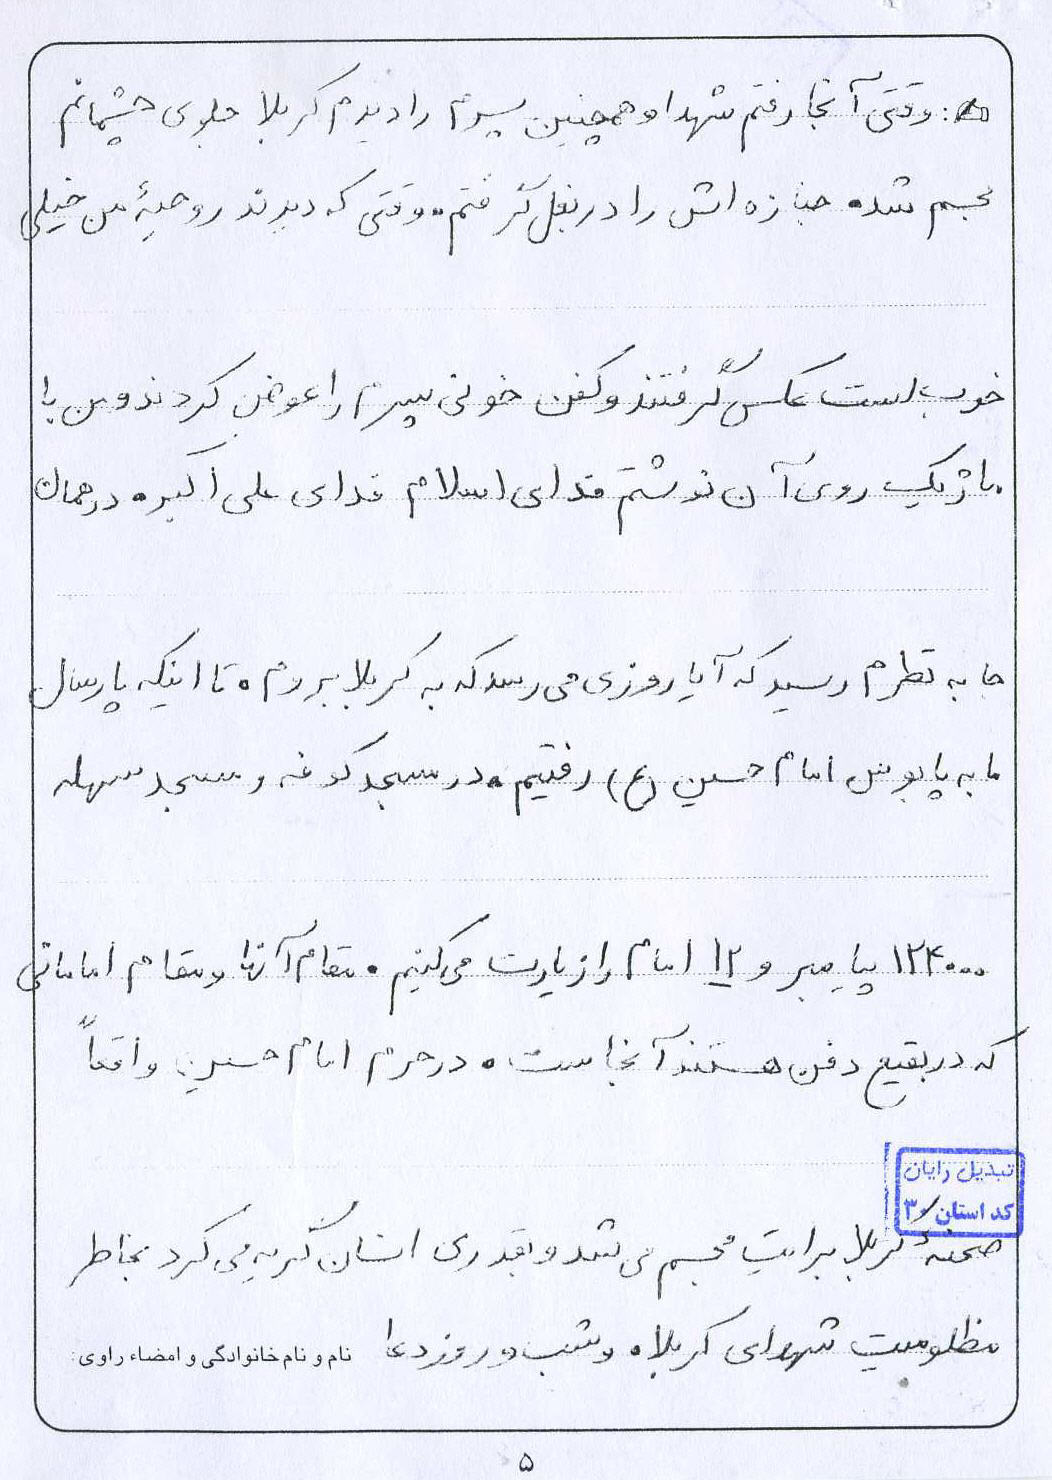 ج: وقتی آنجا رفتم شهدا و همچنین پسرم را دیدم کربلا جلوی چشمانم
مجسم شد. جنازه اش را در بغل گرفتم. وقتی که دیدند روحیهٔ من خیلی
خوب است عکس گرفتند و کفن خونی پسرم را عوض کردند و من با
ماژیک روی آن نوشتم فدای اسلام فدای علی اکبر. در همان
جا به نظرم رسید که آیا روزی می رسد که به کربلا بروم. تا اینکه پارسال
ما به پابوس امام حسین (ع) رفتیم. در مسجد کوفه و مسجد سهله
۱۲۴۰۰۰ پیامبر و ۱۲ امام را زیارت می کنیم. مقام آنها و مقام امامانی
که در بقیع دفن هستند آنجاست. در حرم امام حسین واقعاً
تبدیل رایان
کد استان ۳۰
صحنهٔ کربلا برایت مجسم می شد و بقدری انسان گریه می کرد بخاطر
مظلومیت شهدای کربلا. و شب و روز دعا
نام و نام خانوادگی و امضاء راوی:
۵